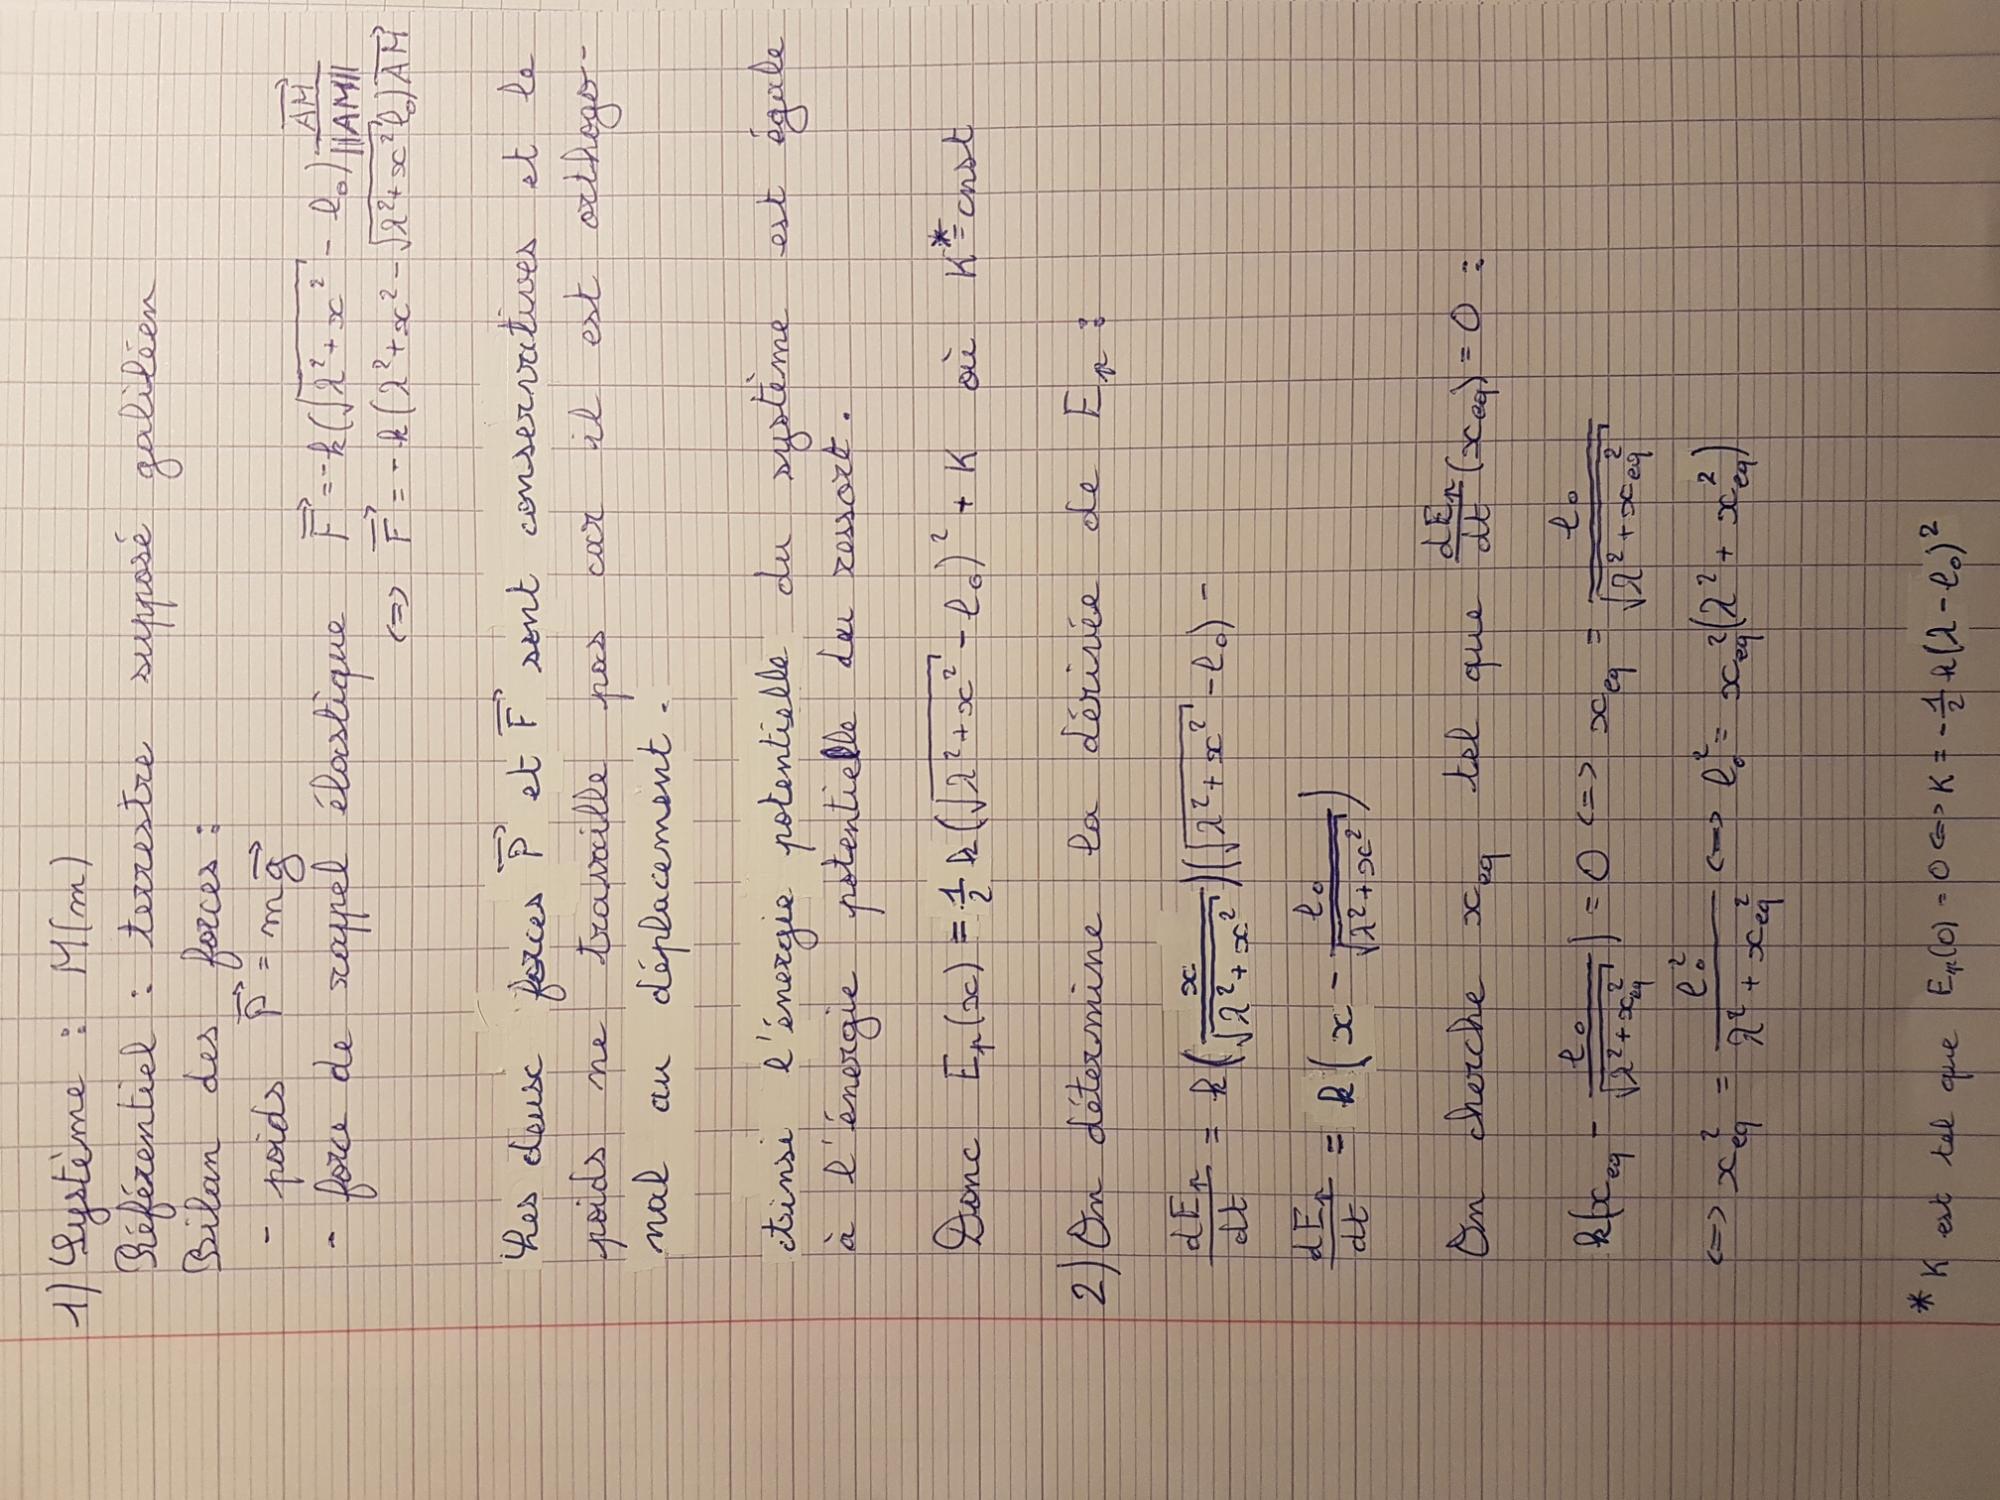 1) Système : M(m)
Référentiel : terrestre supposé galiléen
Bilan des forces :
- poids $\vec{P} = m\vec{g}$
- force de rappel élastique $\vec{F} = -k(\sqrt{\lambda^2 + x^2} - l_0) \frac{\vec{AM}}{||\vec{AM}||}$
<=> $\vec{F} = -k(\lambda^2 + x^2 - \sqrt{\lambda^2 + x^2} l_0) \vec{AM}$
Les deux forces $\vec{P}$ et $\vec{F}$ sont conservatives et le
poids ne travaille pas car il est orthogo-
nal au déplacement.
Ainsi l'énergie potentielle du système est égale
à l'énergie potentielle du ressort.
Donc $E_p(x) = \frac{1}{2} k(\sqrt{\lambda^2 + x^2} - l_0)^2 + K$ où $K^* = cnst$
2) On détermine la dérivée de $E_p$ :
$\frac{dE_p}{dt} = k(\frac{x}{\sqrt{\lambda^2 + x^2}})(\sqrt{\lambda^2 + x^2} - l_0)$ -
$\frac{dE_p}{dt} = k(x - \frac{l_0}{\sqrt{\lambda^2 + x^2}})$
On cherche $x_{eq}$ tel que $\frac{dE_p}{dt}(x_{eq}) = 0$ :
$k(x_{eq} - \frac{l_0}{\sqrt{\lambda^2 + x_{eq}^2}}) = 0$ <=> $x_{eq} = \frac{l_0}{\sqrt{\lambda^2 + x_{eq}^2}}$
<=> $x_{eq}^2 = \frac{l_0^2}{\lambda^2 + x_{eq}^2}$ <=> $l_0^2 = x_{eq}^2(\lambda^2 + x_{eq}^2)$
* K est tel que $E_p(0) = 0$ <=> $K = -\frac{1}{2} k(\lambda - l_0)^2$